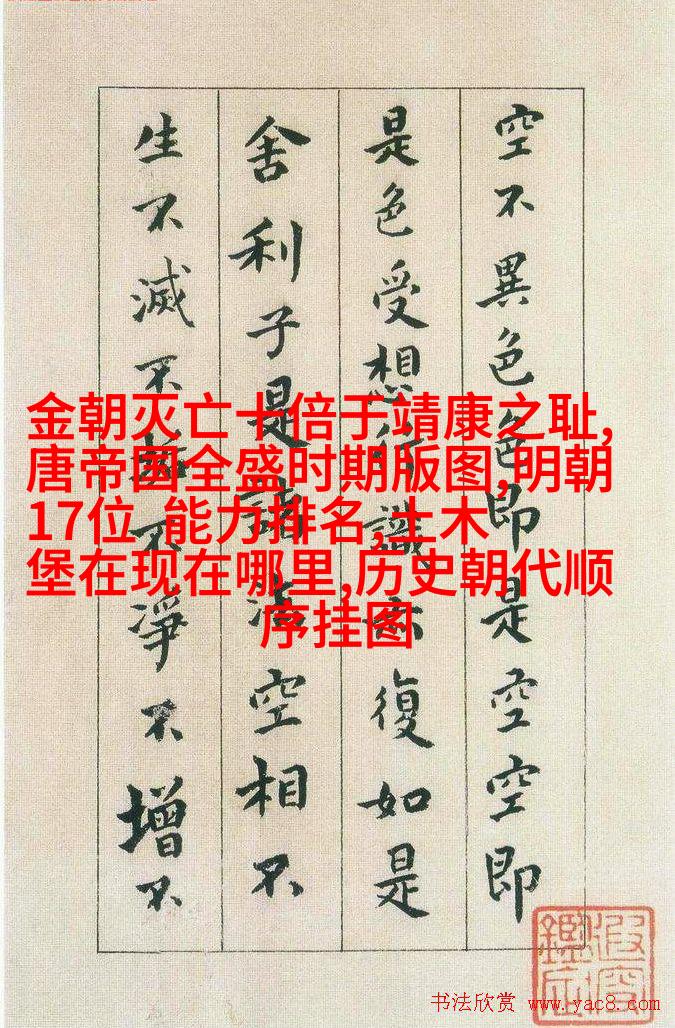 空不異色色即是空空即
是色受想行識亦復如是
舍利子是諸法空相不
生不滅不垢不淨不增不
金朝灭亡十倍于靖康之耻,
唐帝国全盛时期版图,明朝
17位 能力排名,土木
堡在现在哪里,历史朝代顺
序挂图
书法欣赏 www.yac8.com